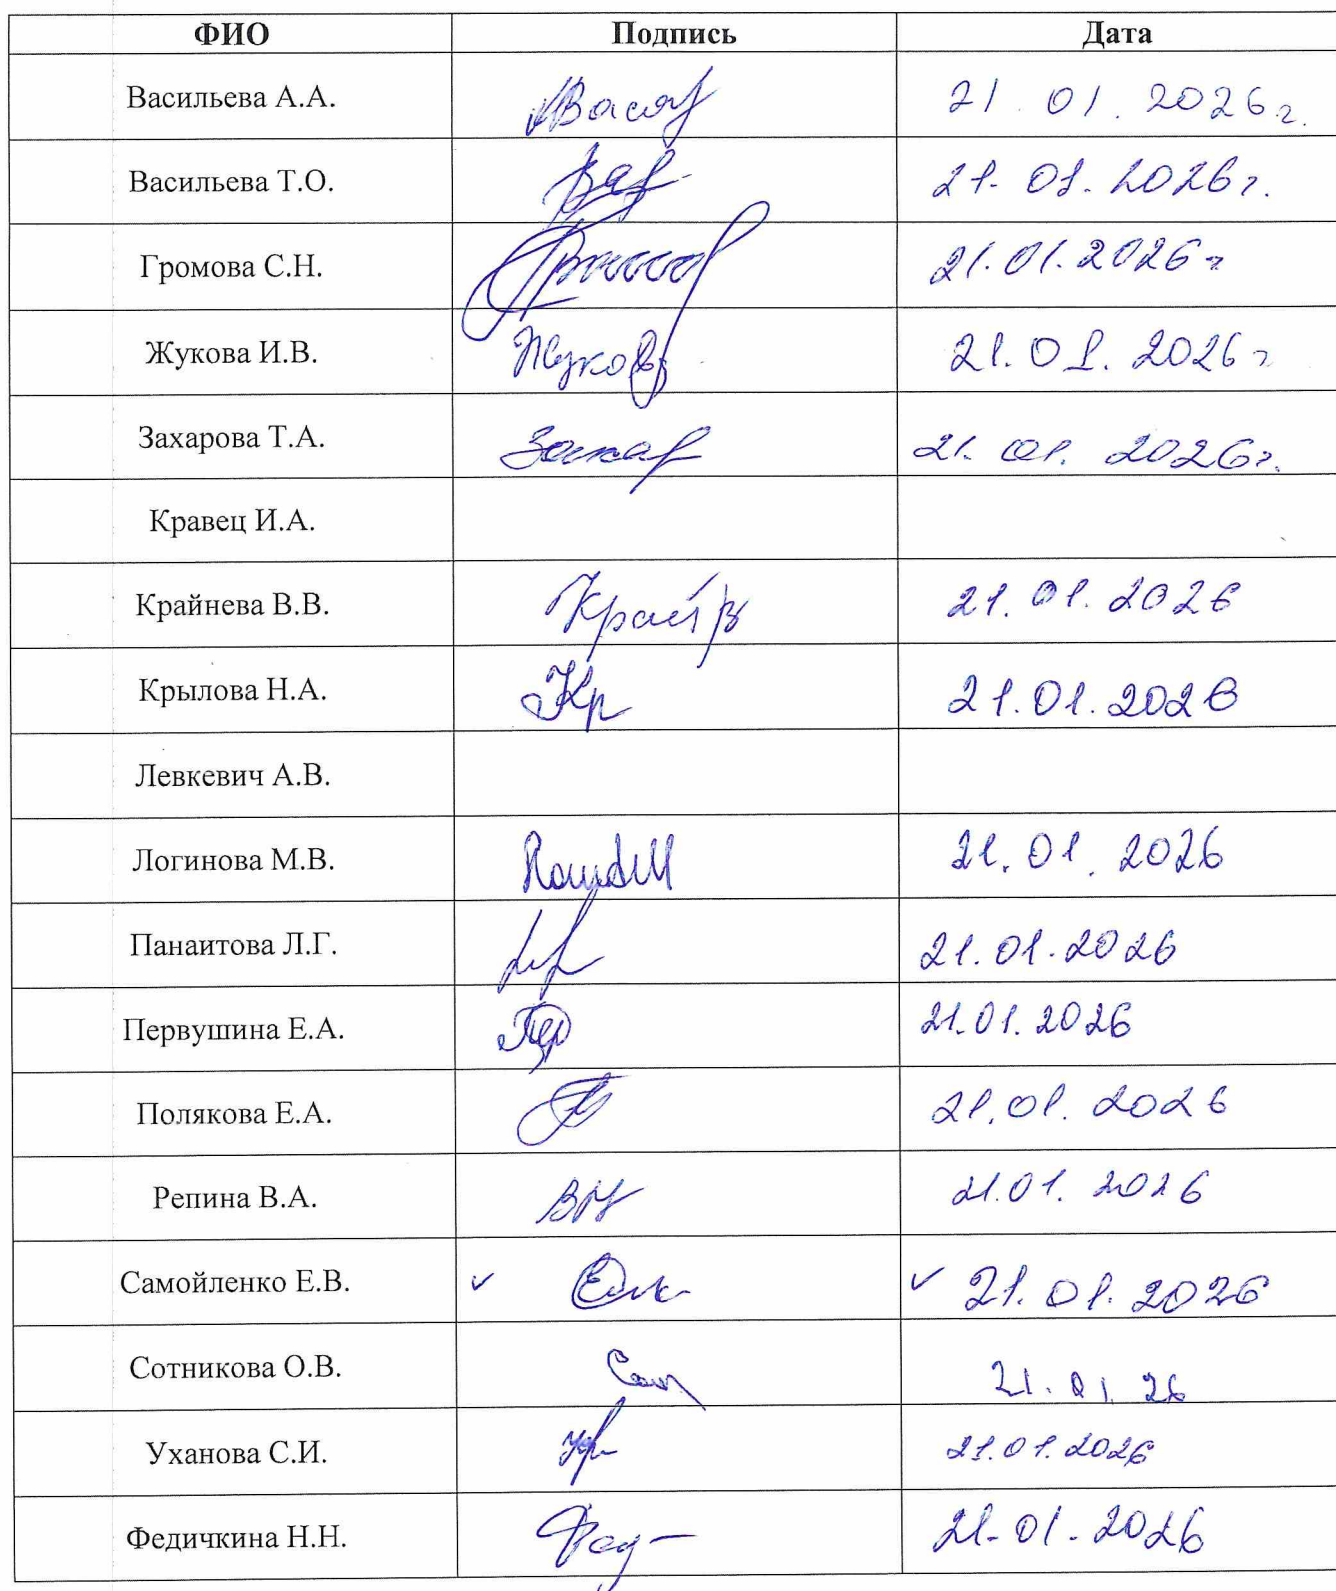 ФИО Подпись Дата
Васильева А.А. 21.01.2026г.
Васильева Т.О. 21.01.2026г.
Громова С.Н. 21.01.2026г
Жукова И.В. Жукова 21.01.2026г
Захарова Т.А. Захар 21.01.2026г.
Кравец И.А.
Крайнева В.В. 21.01.2026
Крылова Н.А. Кр 21.01.2026
Левкевич А.В.
Логинова М.В. 21.01.2026
Панаитова Л.Г. 21.01.2026
Первушина Е.А. 21.01.2026
Полякова Е.А. 21.01.2026
Репина В.А. 21.01.2026
Самойленко Е.В. ✓ ✓ 21.01.2026
Сотникова О.В. 21.01.26
Уханова С.И. 21.01.2026
Федичкина Н.Н. 21-01-2026